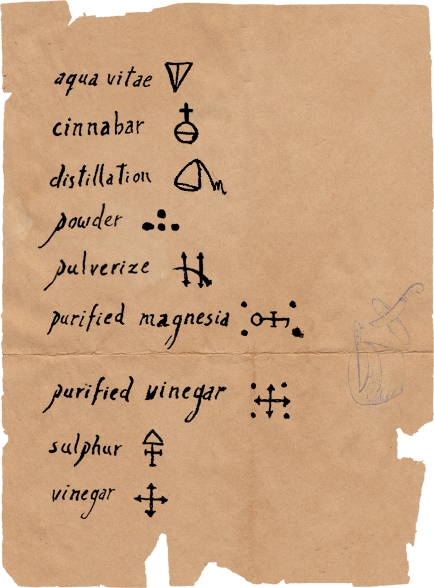 aqua vitae
cinnabar
distillation
powder
pulverize
purified magnesia
purified vinegar
sulphur
vinegar